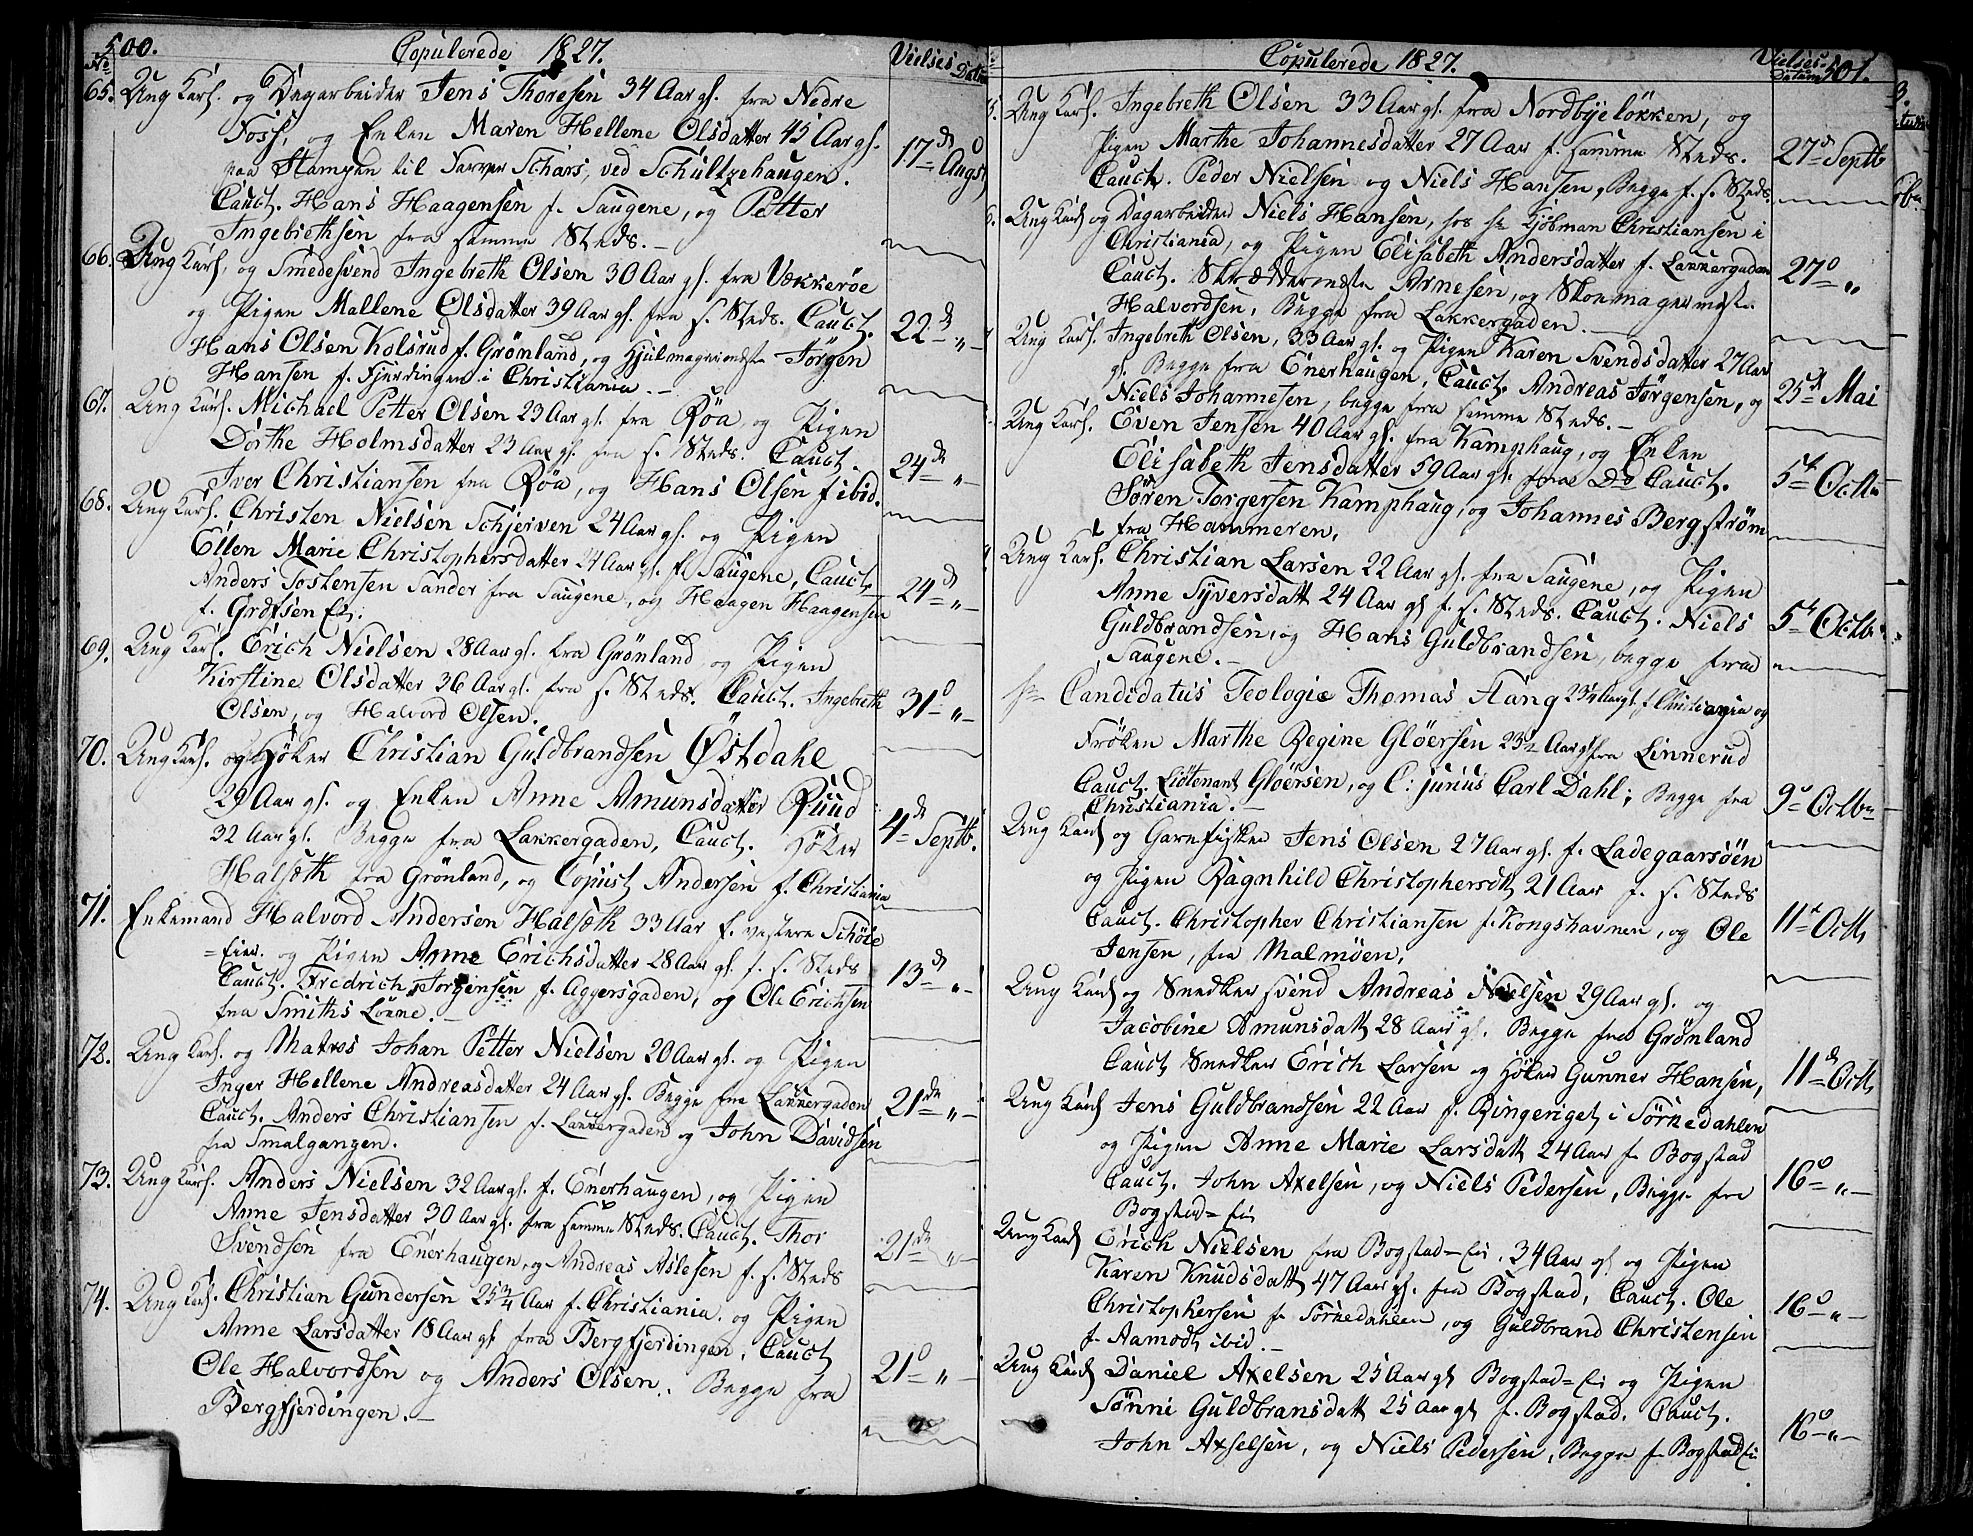 500. Copulerede 1827. Vielses Datum
No
65. Ung Karl. og Dagarbeider Jens Thoresen 34 Aar gl. fra Nedre
Foss, og Enken Maren Hellene Olsdatter 45 Aar gl.
paa Stampen til Farver Schars, ved Schultzehaugen. 17de Augst
Cauct. Hans Haagensen f. Saugene, og Petter
Ingebrethsen fra samme Steds.
66. Ung Karl. og Smedesvend Ingebreth Olsen 30 Aar gl. fra Vækkerøe
og Pigen Mallene Olsdatter 39 Aar gl. fra s. Steds. Cauct. 22de "
Hans Olsen Kolsrud f. Grønland, og Hjulmagersvends Jørgen
Hansen f. Fjerdingen i Christiania.
67. Ung Karl. Michael Petter Olsen 23 Aar gl. fra Røa, og Pigen
Dorthe Holmsdatter 23 Aar gl. fra s. Steds. Cauct. 24de "
Iver Christiansen fra Røa, og Hans Olsen f. ibid.
68. Ung Karl. Christen Nielsen Schjerven 24 Aar gl. og Pigen
Ellen Marie Christophersdatter 24 Aar gl. f. Saugene, Cauct. 24de "
Anders Tostensen Sander fra Saugene, og Haagen Haagensen
f. Grefsen E.
69. Ung Karl. Erich Nielsen 28 Aar gl. fra Grønland og Pigen
Kirstine Olsdatter 36 Aar gl. fra s. Steds. Cauct. Ingebreth 31o "
Olsen, og Halvord Olsen.
70. Ung Karl. og Høker Christian Guldbrandsen Østdahl
29 Aar gl. og Enken Anne Amunsdatter Ruud 4de Septb.
32 Aar gl. Begge fra Lakkergaden, Cauct. Høker
Halseth fra Grønland, og Copiist Andersen f. Christiania
71. Enkemand Halvord Andersen Halseth 33 Aar f. vestere Schøie
=Eier. og Pigen Anne Erichsdatter 28 Aar gl. f. s. Steds 13de "
Cauct. Fredrich Jørgensen f. Aggersgaden, og Ole Erichsen
fra Smiths Lønne.
72. Ung Karl. og Matros Johan Petter Nielsen 20 Aar gl. og Pigen
Inger Hellene Andreasdatter 24 Aar gl. Begge fra Lakkergaden 21de "
Cauct. Anders Christiansen f. Lakkergaden og John Davidsen
fra Smalgangen.
73. Ung Karl. Anders Nielsen 32 Aar gl. f. Enerhaugen, og Pigen
Anne Jensdatter 30 Aar gl. fra samme Steds. Cauct. Thor 21de "
Svendsen fra Enerhaugen, og Andreas Aslesen f. s. Steds
74. Ung Karl. Christian Gundersen 25 3/4 Aar f. Christiania. og Pigen
Anne Larsdatter 18 Aar gl. fra Bergfjerdingen, Cauct 21o "
Ole Halvordsen og Anders Olsen. Begge fra
Bergfjerdingen.
Copulerede 1827. Vielses Datum 501.
5. Ung Karl. Ingebreth Olsen 33 Aar gl. fra Nordbyeløkken, og
Pigen Marthe Johannesdatter 27 Aar f. samme Steds. 27de Septb
Cauct. Peder Nielsen og Niels Hansen, Begge f. s. Steds.
6. Ung Karl og Dagarbeider Niels Hansen, hos Hr Kjøbman Christiansen i
Christiania, og Pigen Elisabeth Andersdatter f. Lakkergaden 27o "
Cauct. Skræddersvends Arnesen, og Skomagermest.
Halvordsen, Begge fra Lakkergaden.
7 Ung Karl. Ingebreth Olsen, 33 Aar gl. og Pigen Karen Svendsdatter 27 Aar
gl. Begge fra Enerhaugen, Cauct. Andreas Jørgensen, og 25de Mai
Niels Johannesen, begge fra samme Steds.
Ung Karl. Even Jensen 40 Aar gl. fra Kamphaug, og Enken
Elisabeth Jensdatter 59 Aar gl. fra Do Cauct. 5te Octb
Søren Torgersen Kamphaug, og Johannes Bergstrøm
fra Hammeren.
Ung Karl. Christian Larsen 22 Aar gl. fra Saugene, og Pigen
Anne Syversdatt 24 Aar gl f. s. Steds. Cauct. Niels 5te Octb
Guldbrandsen, og Hans Guldbrandsen, begge fra
Saugene.
Hr Candidatus Teologie Thomas Stang 23 1/4 Aar gl. f. Christiania og
Frøken Marthe Regine Gløersen 23 1/2 Aar gl fra Linnerud
Cauct. Liøtenant Gløersen, og C: junius Carl Dahl; Begge fra 9o Octbr
Christiania.
Ung Karl og Garnfisker Jens Olsen 27 Aar gl. f. Ladegaarsøen
og Pigen Ragnhild Christophersdt 21 Aar f. s. Steds
Cauct. Christopher Christiansen f. Kongshavnen, og Ole 11te Octb
Jensen, fra Malmøen.
Ung Karl og Snedkersvend Andreas Nielsen 29 Aar gl. og
Jacobine Amunsdatt 28 Aar gl. Begge fra Grønland
Cauct Snedker Erich Larsen og Høker Gunner Hansen, 11de Octb
Ung Karl Jens Guldbrandsen 22 Aar f. Ringeriget i Sørkedahlen
og Pigen Anne Marie Larsdatt 24 Aar f. Bogstad
Cauct. John Axelsen, og Niels Pedersen, Begge fra 16o "
Bogstad=Ei
Ung Karl Erich Nielsen fra Bogstad-Ei. 34 Aar gl og Pigen
Karen Knudsdatt 47 Aar gl. fra Bogstad, Cauct. Ole
Christophersen f. Sørkedahlen, og Guldbrand Christensen 16o "
f. Aamodt ibid.
Ung Karl Daniel Axelsen 25 Aar gl Bogstad=Ei og Pigen
Sønni Guldbransdatt 25 Aar gl f. Bogstad. Cauct. 16o "
John Axselsen, og Niels Pedersen, Begge f. Bogstad Ei